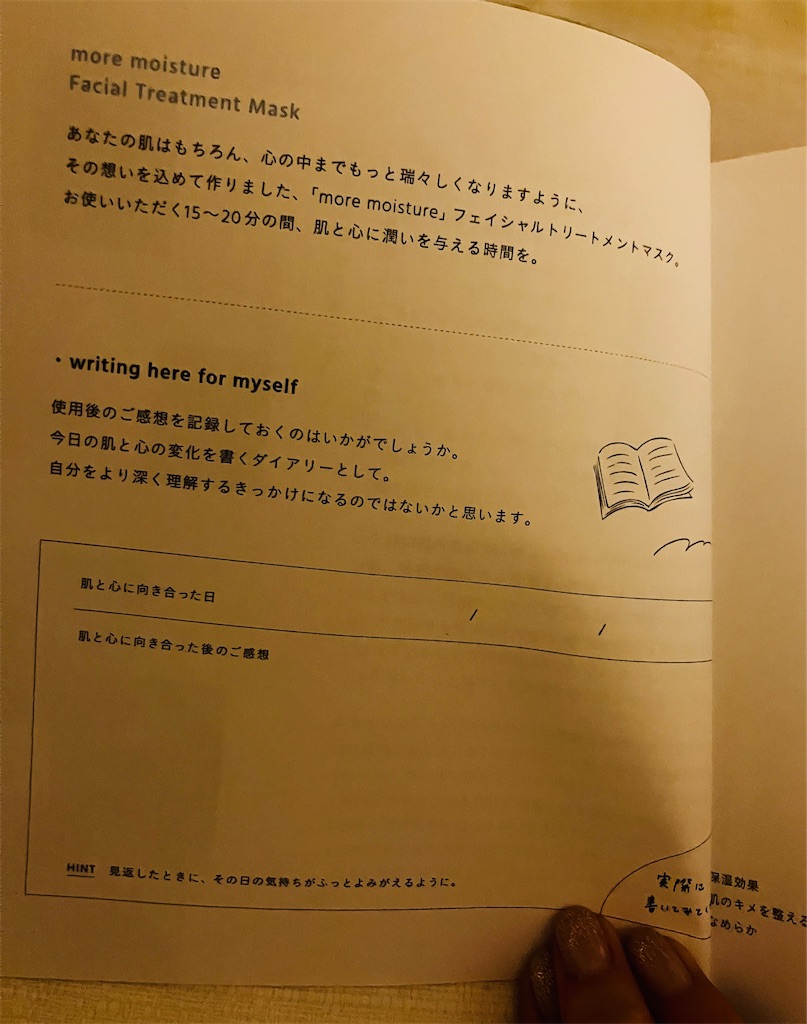 more moisture
Facial Treatment Mask
あなたの肌はもちろん、心の中までもっと瑞々しくなりますように、
その想いを込めて作りました、「more moisture」フェイシャルトリートメントマスク。
お使いいただく15〜20分の間、肌と心に潤いを与える時間を。
・writing here for myself
使用後のご感想を記録しておくのはいかがでしょうか。
今日の肌と心の変化を書くダイアリーとして。
自分をより深く理解するきっかけになるのではないかと思います。
肌と心に向き合った日 / /
肌と心に向き合った後のご感想
HINT 見返したときに、その日の気持ちがふっとよみがえるように。
実際に
書いてみて
保湿効果
肌のキメを整える
なめらか